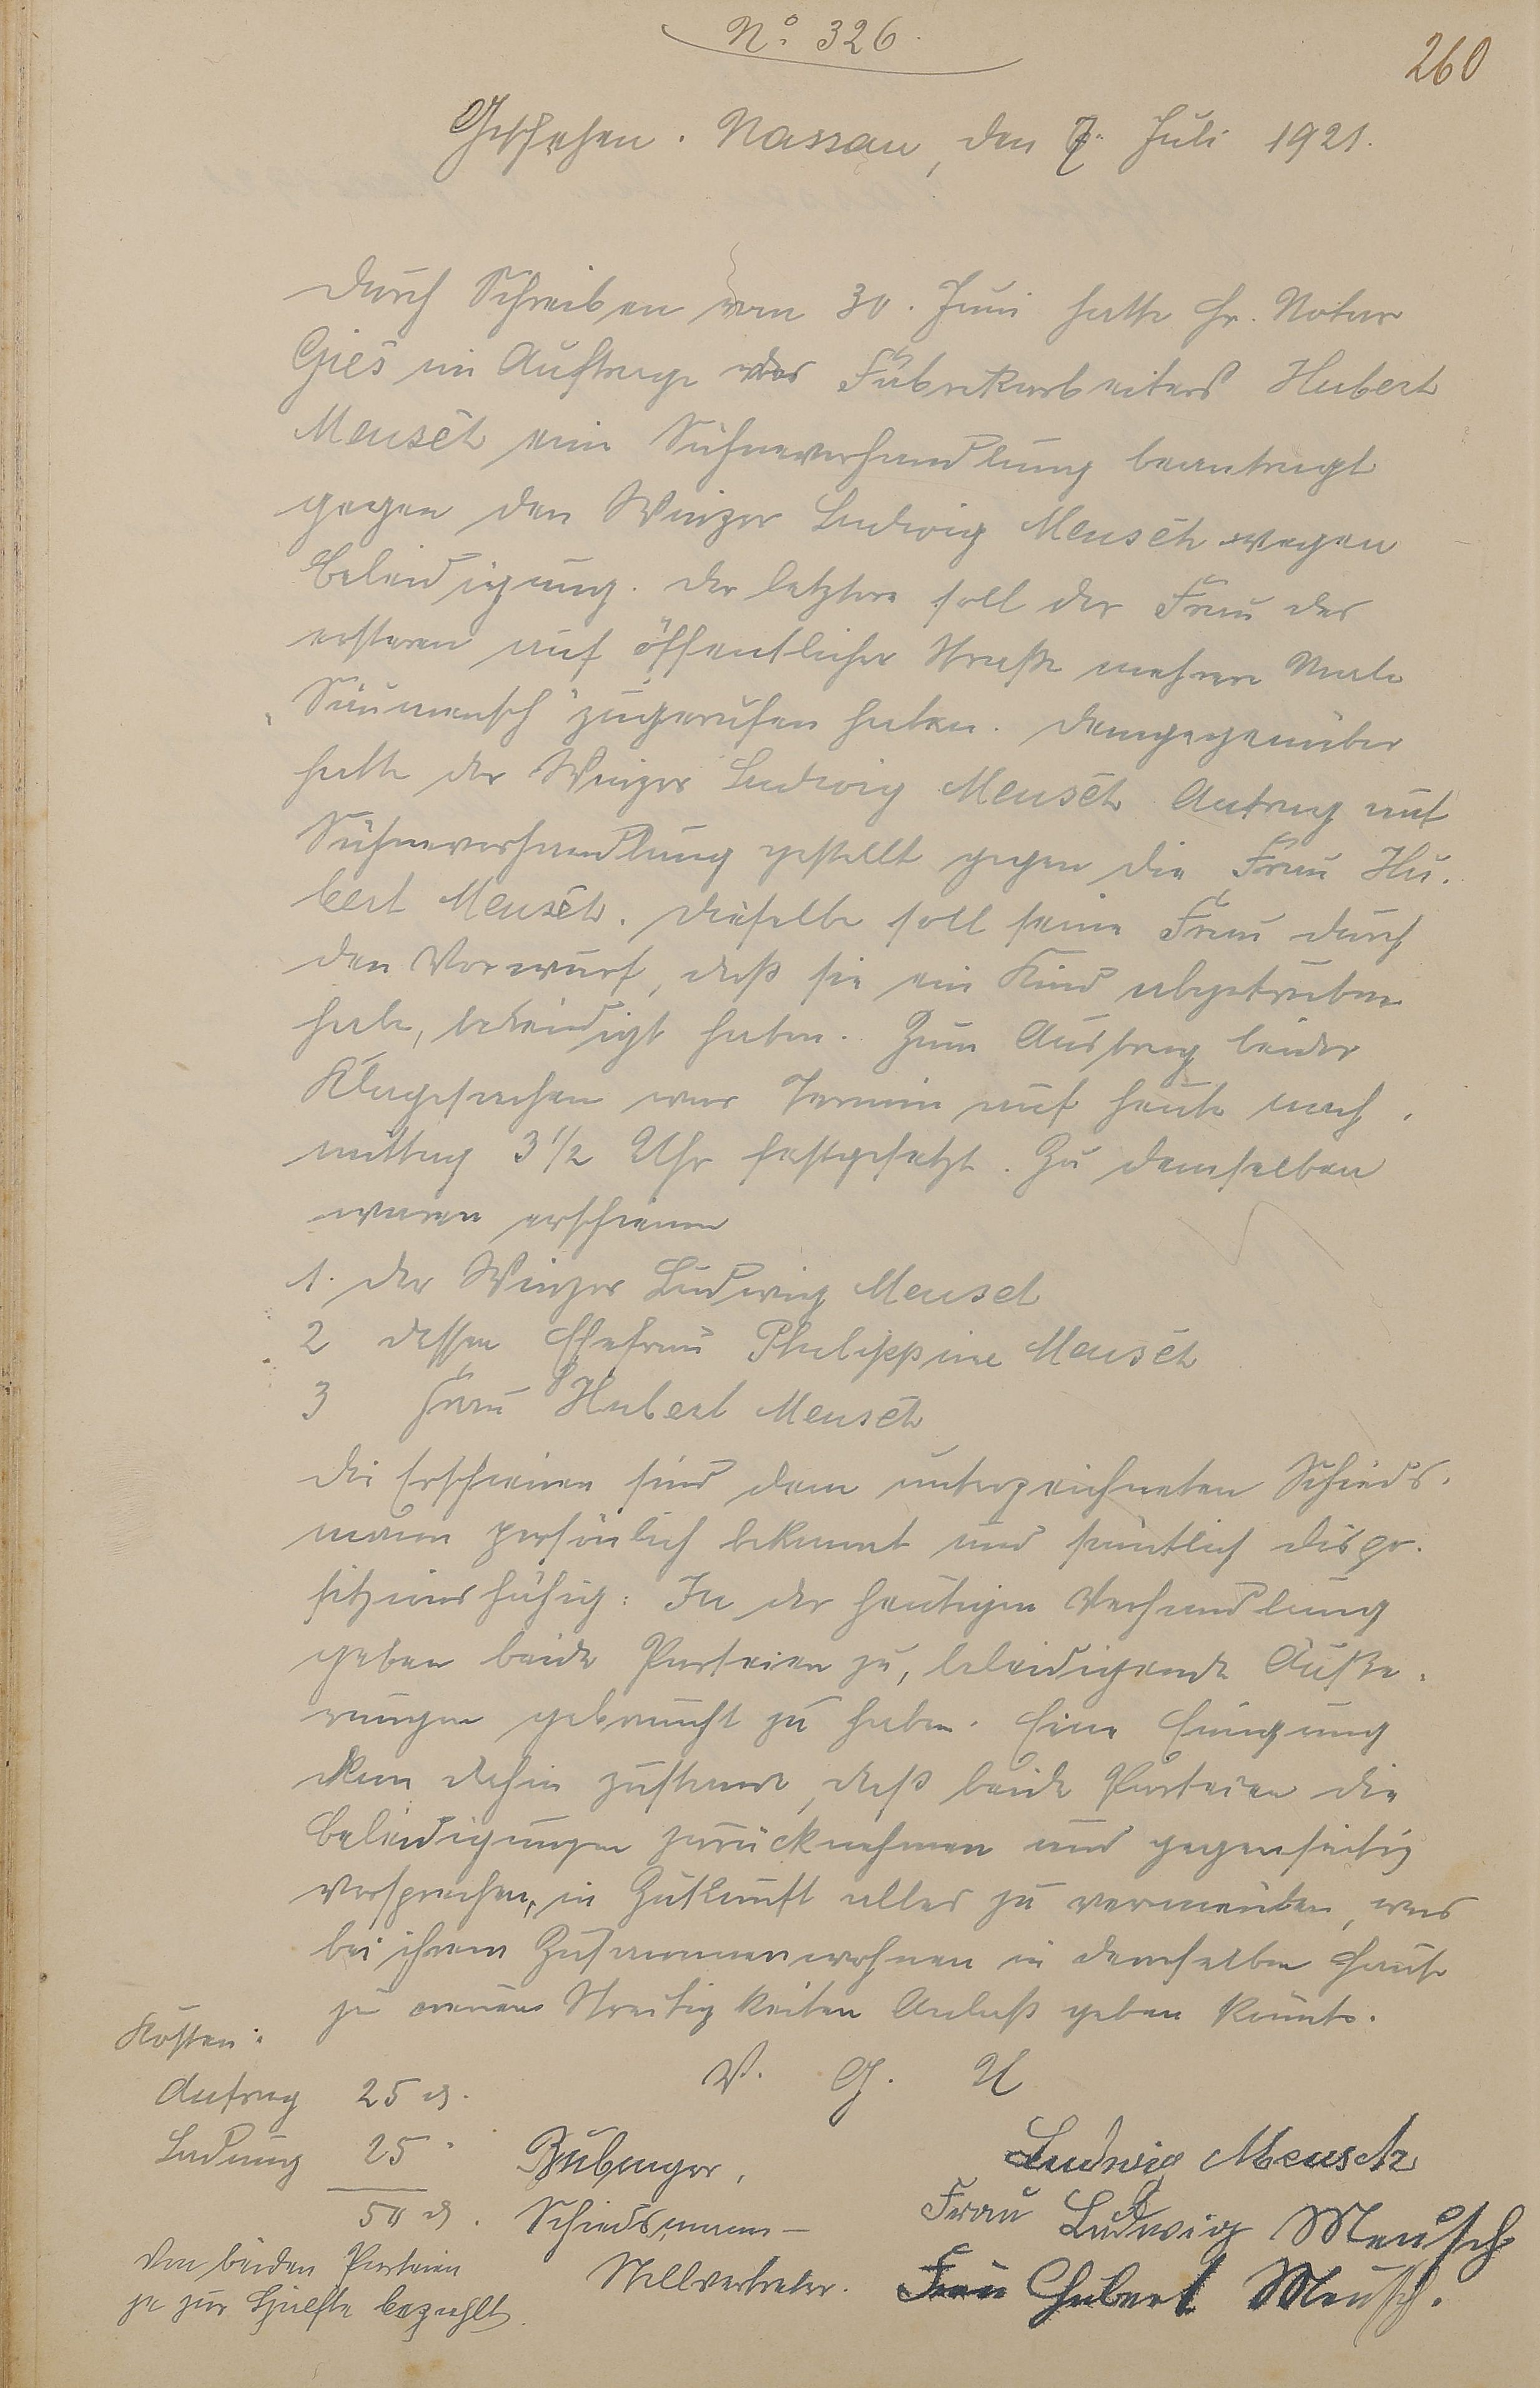 No. 326.
260
Geschehen. Nassau, den 7. Juli 1921.
Durch Schreiben vom 30. Juni hatte Hr. Notar
Gies im Auftrage des Fabrikarbeiters Hubert
Meusch eine Sühneverhandlung beantragt
gegen den Winzer Ludwig Meusch wegen
Beleidigung. Der letztere soll der Frau des
ersteren auf öffentlicher Straße mehrere Male
„Saumensch" zugerufen haben. Demgegenüber
hatte der Winzer Ludwig Meusch Antrag auf
Sühneverhandlung gestellt gegen die Frau Hu-
bert Meusch. Dieselbe soll seine Frau durch
den Vorwurf, daß sie ein Kind abgetrieben
habe, beleidigt haben. Zum Austrag beider
Klagesachen war Termin auf heute nach-
mittag 3 1/2 Uhr festgesetzt. Zu demselben
waren erschienen
1. der Winzer Ludwig Meusch
2 dessen Ehefrau Philippine Meusch
3 Frau Hubert Meusch
Die Erschienen sind dem unterzeichneten Schieds-
mann persönlich bekannt und sämtlich dispo-
sitionsfähig: In der heutigen Verhandlung
geben beide Parteien zu, beleidigende Äuße-
rungen gebraucht zu haben. Eine Einigung
kam dahin zustande, daß beide Parteien die
Beleidigungen zurücknehmen und gegenseitig
versprechen, in Zukunft alles zu vermeiden, was
bei ihrem Zusammenwohnen in demselben Hause
zu neuen Streitigkeiten Anlaß geben könnte.
V. G. U
Kosten:
Antrag 25 ₰.
Ladung 25 "
50 ₰.
Von beiden Parteien
je zur Hälfte bezahlt.
Schiedsmann-
Stellvertreter.
Ludwig Meusch
Frau Ludwig Meusch
Frau Hubert Meusch.